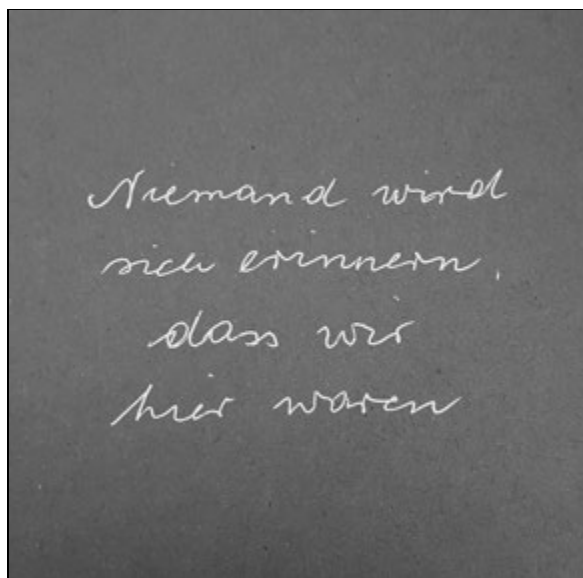 Niemand wird
sich erinnern,
dass wir
hier waren